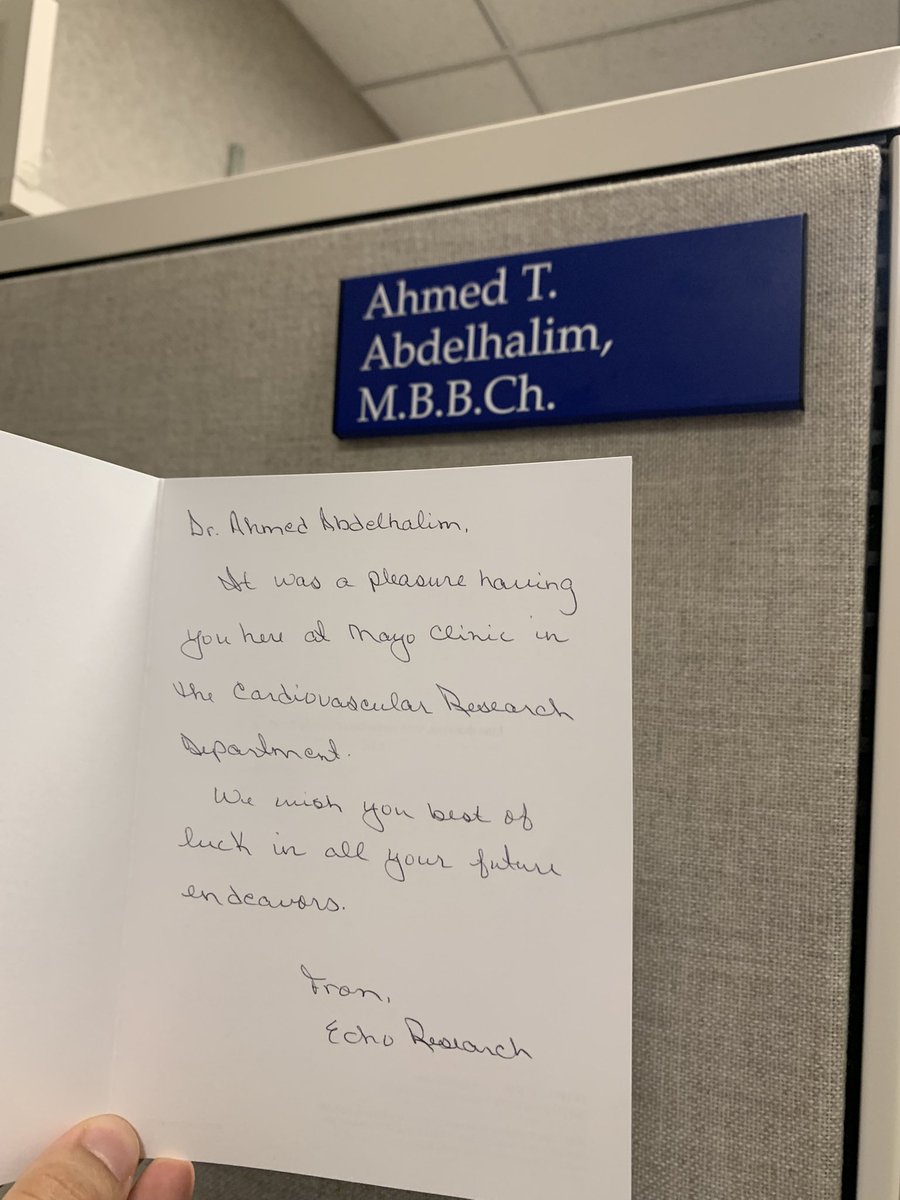 Ahmed T.
Abdelhalim,
M.B.B.Ch.
Dr. Ahmed Abdelhalim,
It was a pleasure having
you here at Mayo Clinic in
the Cardiovascular Research
Department.
We wish you best of
luck in all your future
endeavors.
From,
Echo Research